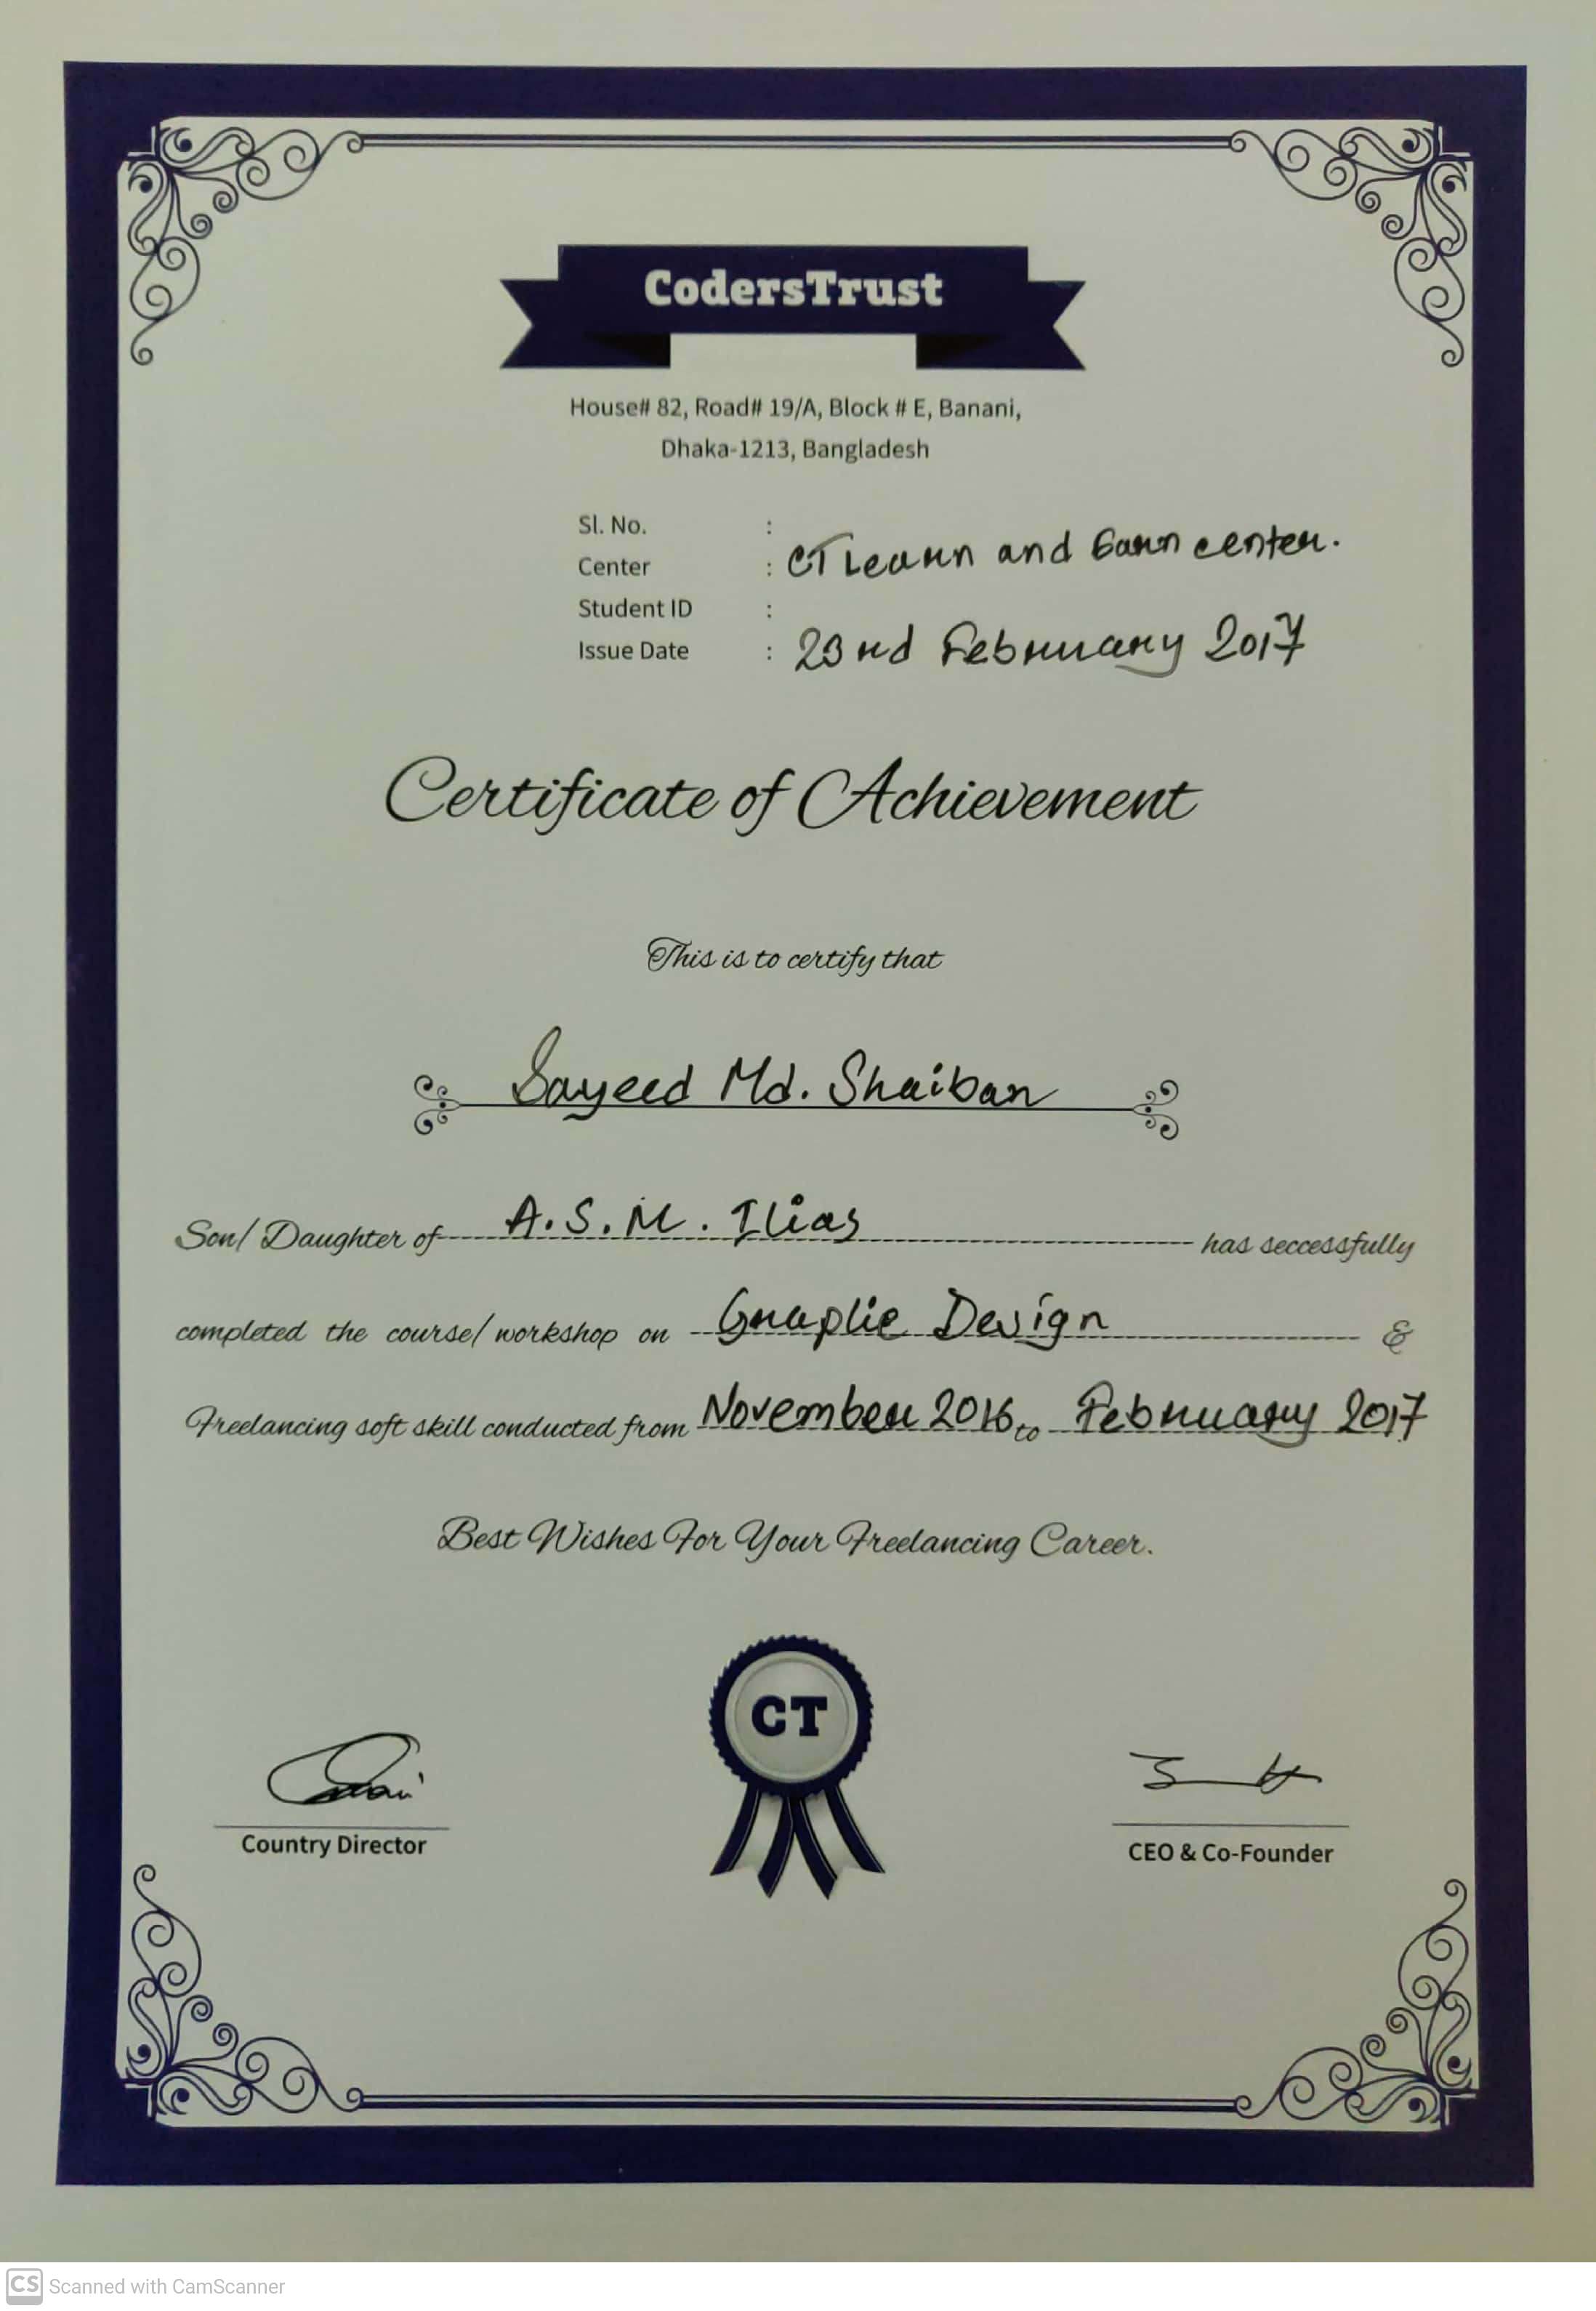 CodersTrust
House# 82, Road# 19/A, Block # E, Banani,
Dhaka-1213, Bangladesh
Sl. No. :
Center : CT Learn and Earn center.
Student ID :
Issue Date : 23rd February 2017
Certificate of Achievement
This is to certify that
Sayeed Md. Shaiban
Son/ Daughter of A.S.M. Ilias has seccessfully
completed the course/ workshop on Graphic Design &
Freelancing soft skill conducted from November 2016 to February 2017
Best Wishes For Your Freelancing Career.
CT
Country Director
CEO & Co-Founder
CS Scanned with CamScanner